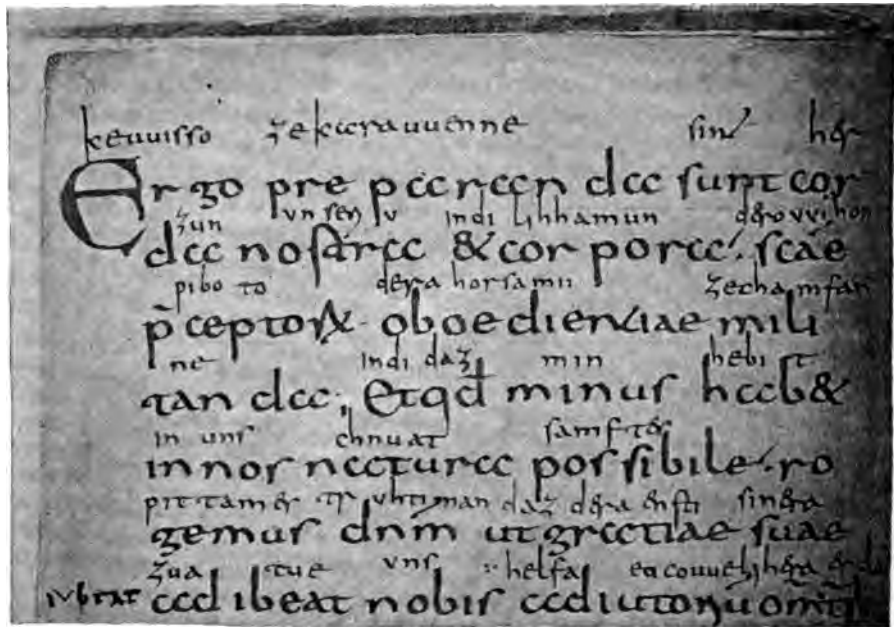 keuuisso ze karauuenne sin her
Ergo pre paran da sunt cor
zun vnseriv indi lihhamun dero vvihon
da nostra & cor pora. scae
pibo to dera horsamii zecham fan
p̄ceptorꝝ oboedientiae mili
ne indi daz min hebi t
tan da; Et qđ minus hab&
in uns chnuat samfter
in nos natura possibile. ro
pittamer tr vhtinan daz dera ensti sinera
gemus dn̄m ut gratiae suae
zua tue vns helfa
iubeat ad ibeat nobis adiutoriū